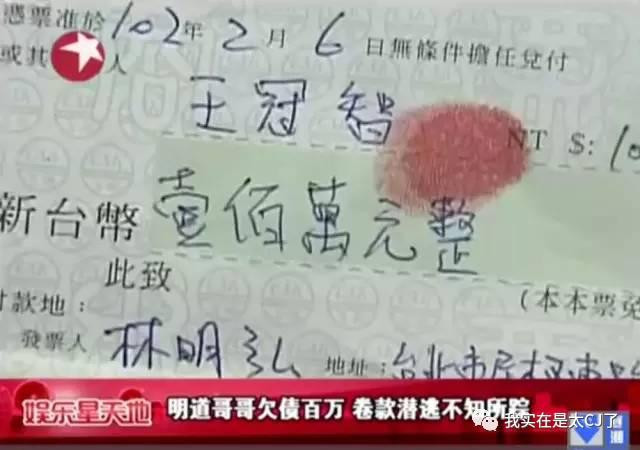 憑票准於102年2月6日無條件擔任兌付
或其 人
王冠智
NT $:
新台幣壹佰萬元整
此致
付款地:
(本本票免
發票人 林明弘 地址: 台北市
娱乐星天地
明道哥哥欠债百万 卷款潜逃不知所踪
我实在是太CJ了